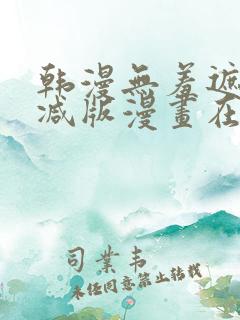 韩漫無羞遮
减版漫畫在
司業韦
未任同意禁止转载